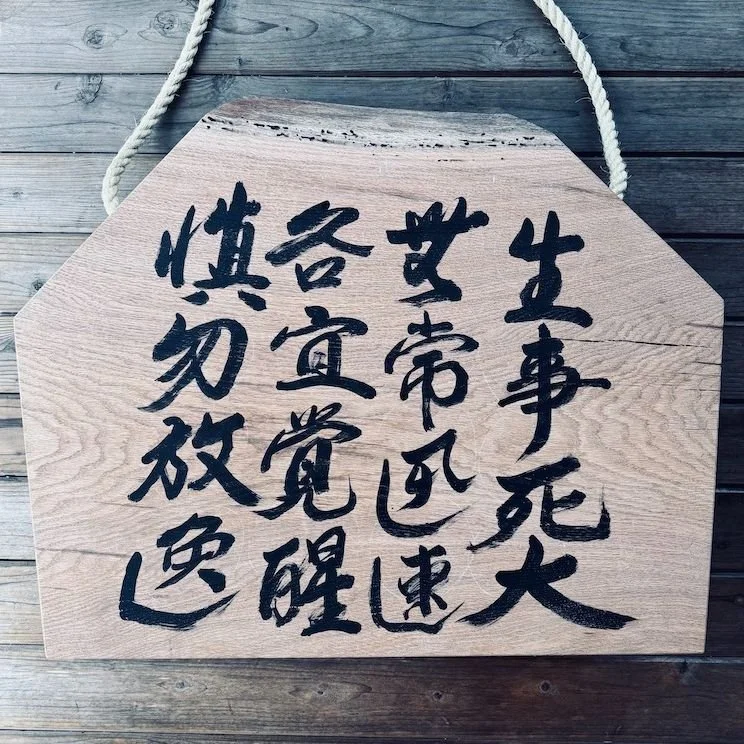 生事死大
無常迅速
各宜覚醒
慎勿放逸